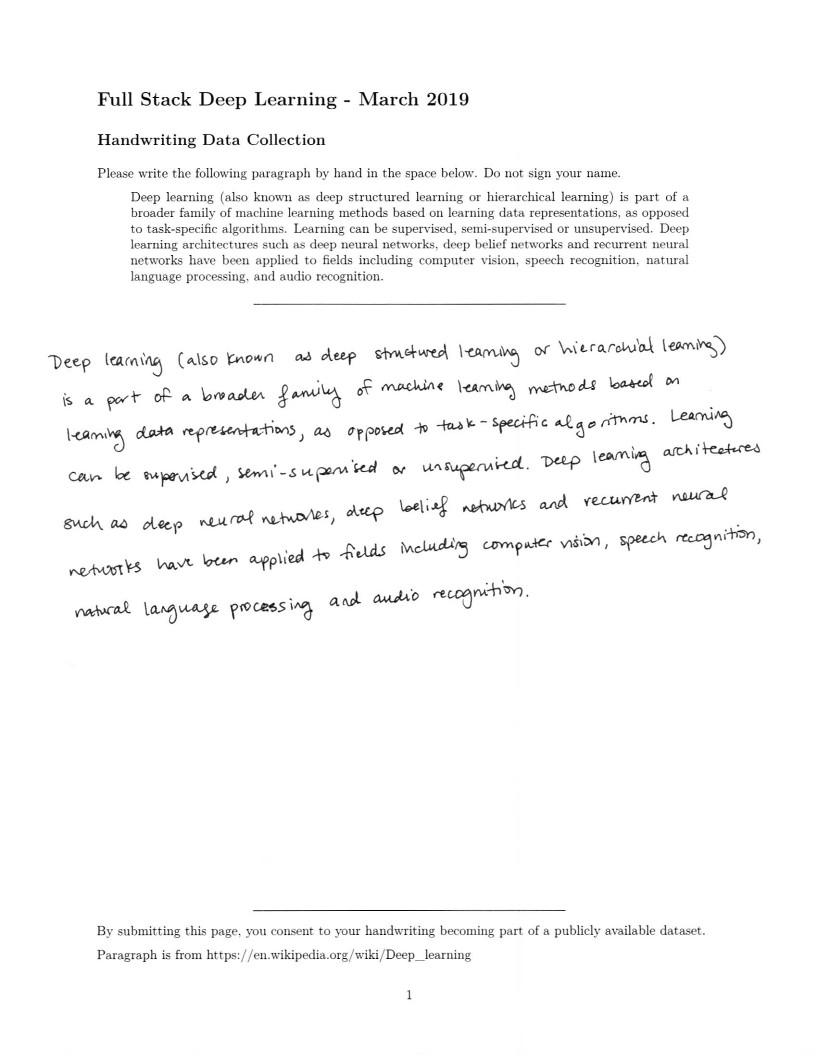 Full Stack Deep Learning - March 2019
Handwriting Data Collection
Please write the following paragraph by hand in the space below. Do not sign your name.
Deep learning (also known as deep structured learning or hierarchical learning) is part of a
broader family of machine learning methods based on learning data representations, as opposed
to task-specific algorithms. Learning can be supervised, semi-supervised or unsupervised. Deep
learning architectures such as deep neural networks, deep belief networks and recurrent neural
networks have been applied to fields including computer vision, speech recognition, natural
language processing, and audio recognition.
Deep learning (also known as deep structured learning or hierarchial learning)
is a part of a broader family of machine learning methods based on
learning data representations, as opposed to task-specific algorithms. Learning
can be supervised, semi-supervised or unsupervised. Deep learning architectures
such as deep neural networks, deep belief networks and recurrent neural
networks have been applied to fields including computer vision, speech recognition,
natural language processing and audio recognition.
By submitting this page, you consent to your handwriting becoming part of a publicly available dataset.
Paragraph is from https://en.wikipedia.org/wiki/Deep_learning
1